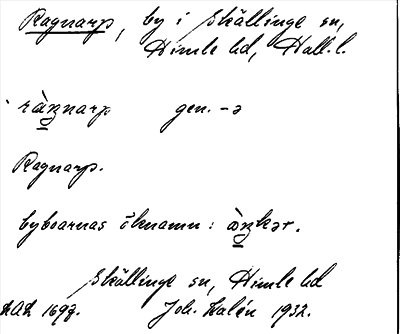 Ragnarp, by i Skällinge sn,
Himle hd, Hall. l.
gen. -ə
Ragnarp.
byboarnas öknamn:
Skällinge sn, Himle hd
Joh. Kalén 1932.